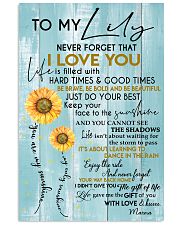 TO MY Lily
NEVER FORGET THAT
I LOVE YOU
Life is filled with
HARD TIMES & GOOD TIMES
BE BRAVE, BE BOLD AND BE BEAUTIFUL
JUST DO YOUR BEST
Keep your
face to the sunshine
AND YOU CANNOT SEE
THE SHADOWS
Life isn't about waiting for
the storm to pass
IT'S ABOUT LEARNING TO
DANCE IN THE RAIN
Enjoy the ride
And never forget
YOUR WAY BACK HOME
I DIDN'T GIVE YOU The gift of life
Life gave me the GIFT of you
WITH LOVE & kisses
you are my sunshine